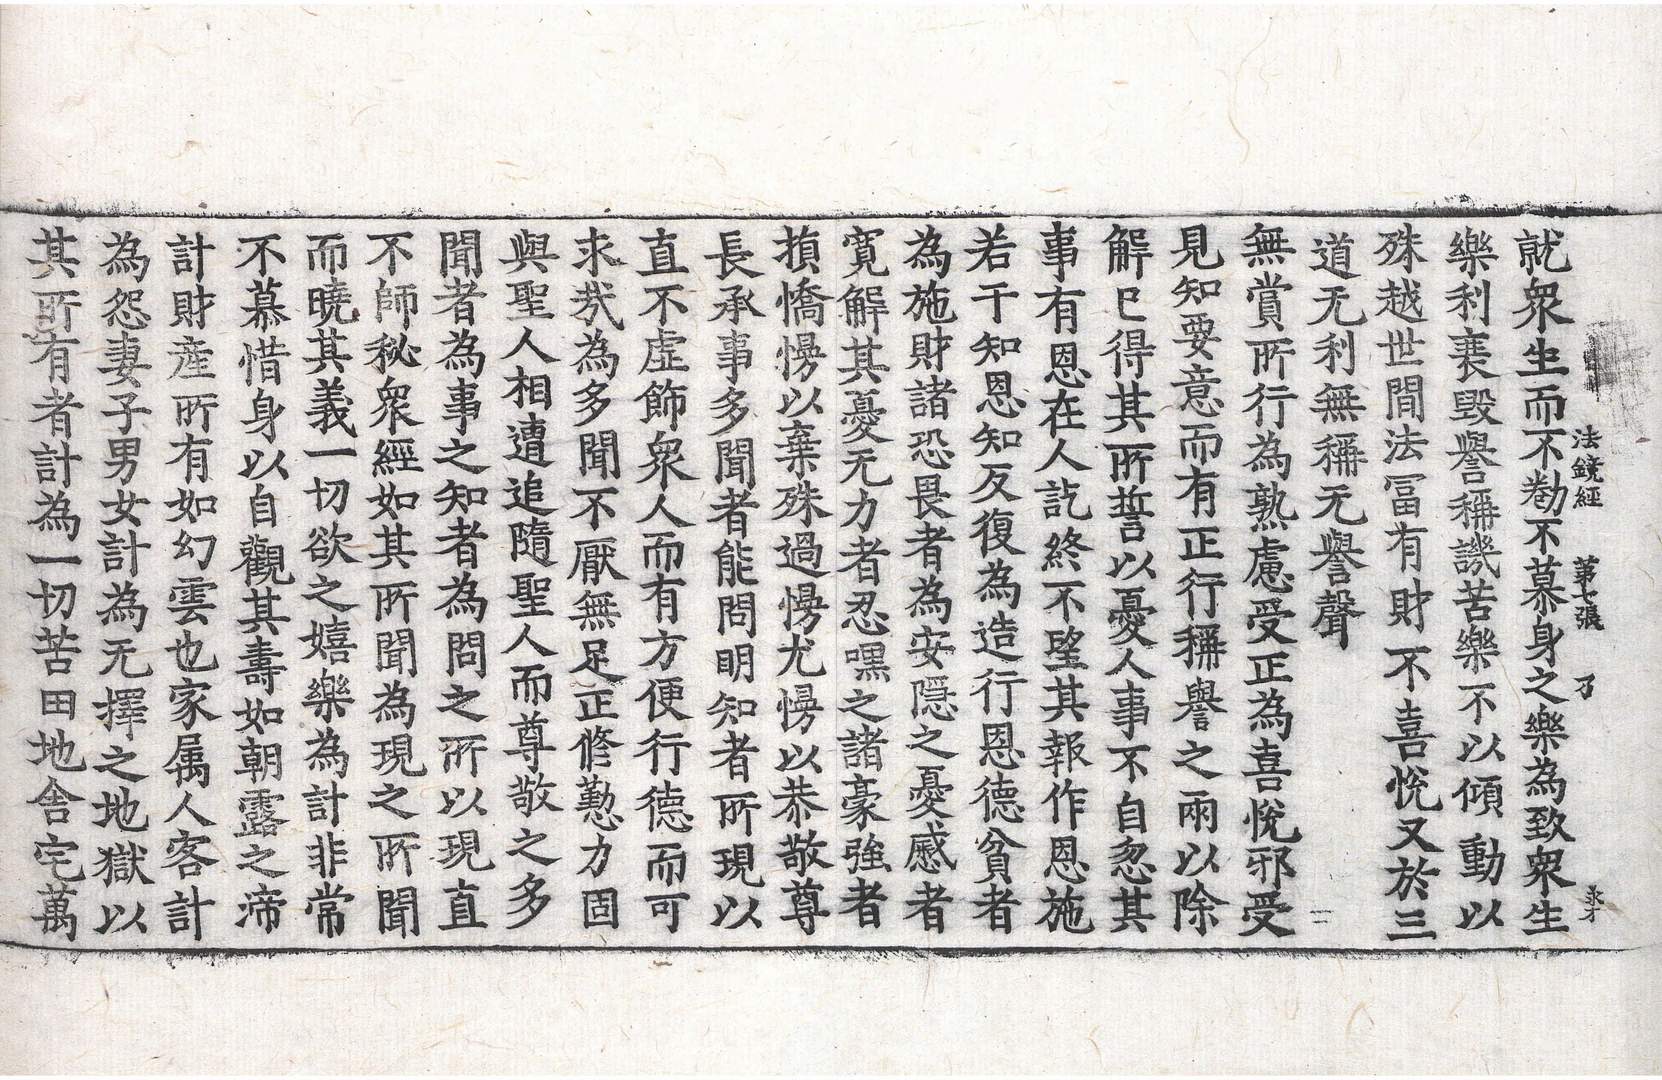 法鏡經 第七張 乃 永才
就衆生而不勌不慕身之樂為致衆生
樂利衰毀譽稱譏苦樂不以傾動以
殊越世間法冨有財不喜悅又於三
道无利無稱无譽聲
無賞所行為熟慮受正為喜悅邪受
見知要意而有正行稱譽之兩以除
解已得其所誓以憂人事不自忽其
事有恩在人訖終不望其報作恩施
若干知恩知反復為造行恩德貧者
為施財諸恐畏者為安隱之憂慼者
寬解其憂无力者忍嘿之諸豪強者
損憍慢以棄殊過慢尤慢以恭敬尊
長承事多聞者能問明知者所現以
直不虛飾衆人而有方便行德而可
求㢤為多聞不厭無足正修懃力固
與聖人相遭追隨聖人而尊敬之多
聞者為事之知者為問之所以現直
不師秘衆經如其所聞為現之所聞
而曉其義一切欲之嬉樂為計非常
不慕惜身以自觀其壽如朝露之渧
計財産所有如幻雲也家属人客計
為怨妻子男女計為无擇之地獄以
其所有者計為一切苦田地舍宅萬